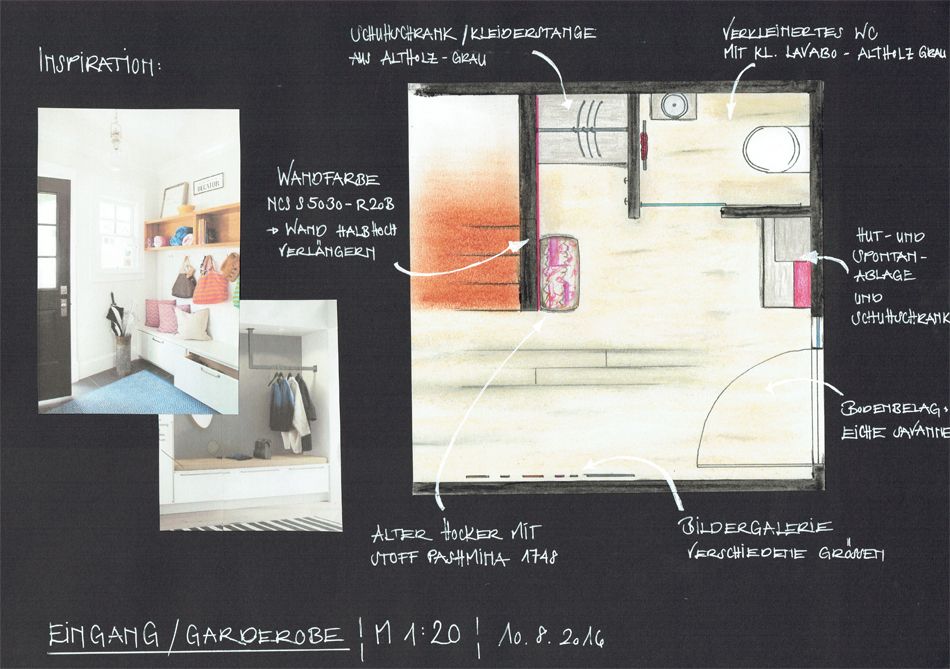 INSPIRATION:
SCHUHSCHRANK / KLEIDERSTANGE
AUS ALTHOLZ - GRAU
VERKLEINERTES WC
MIT KL. LAVABO - ALTHOLZ GRAU
WANDFARBE
NCS S 5030 - R20B
→ WAND HALBHOCH
VERLÄNGERN
HUT - UND
SPONTAN-
ABLAGE
UND
SCHUHSCHRANK
BODENBELAG:
EICHE SAVANNE
ALTER HOCKER MIT
STOFF PASHMINA 1748
BILDERGALERIE
VERSCHIEDENE GRÖSSEN
EINGANG / GARDEROBE | M 1:20 | 10.8.2016